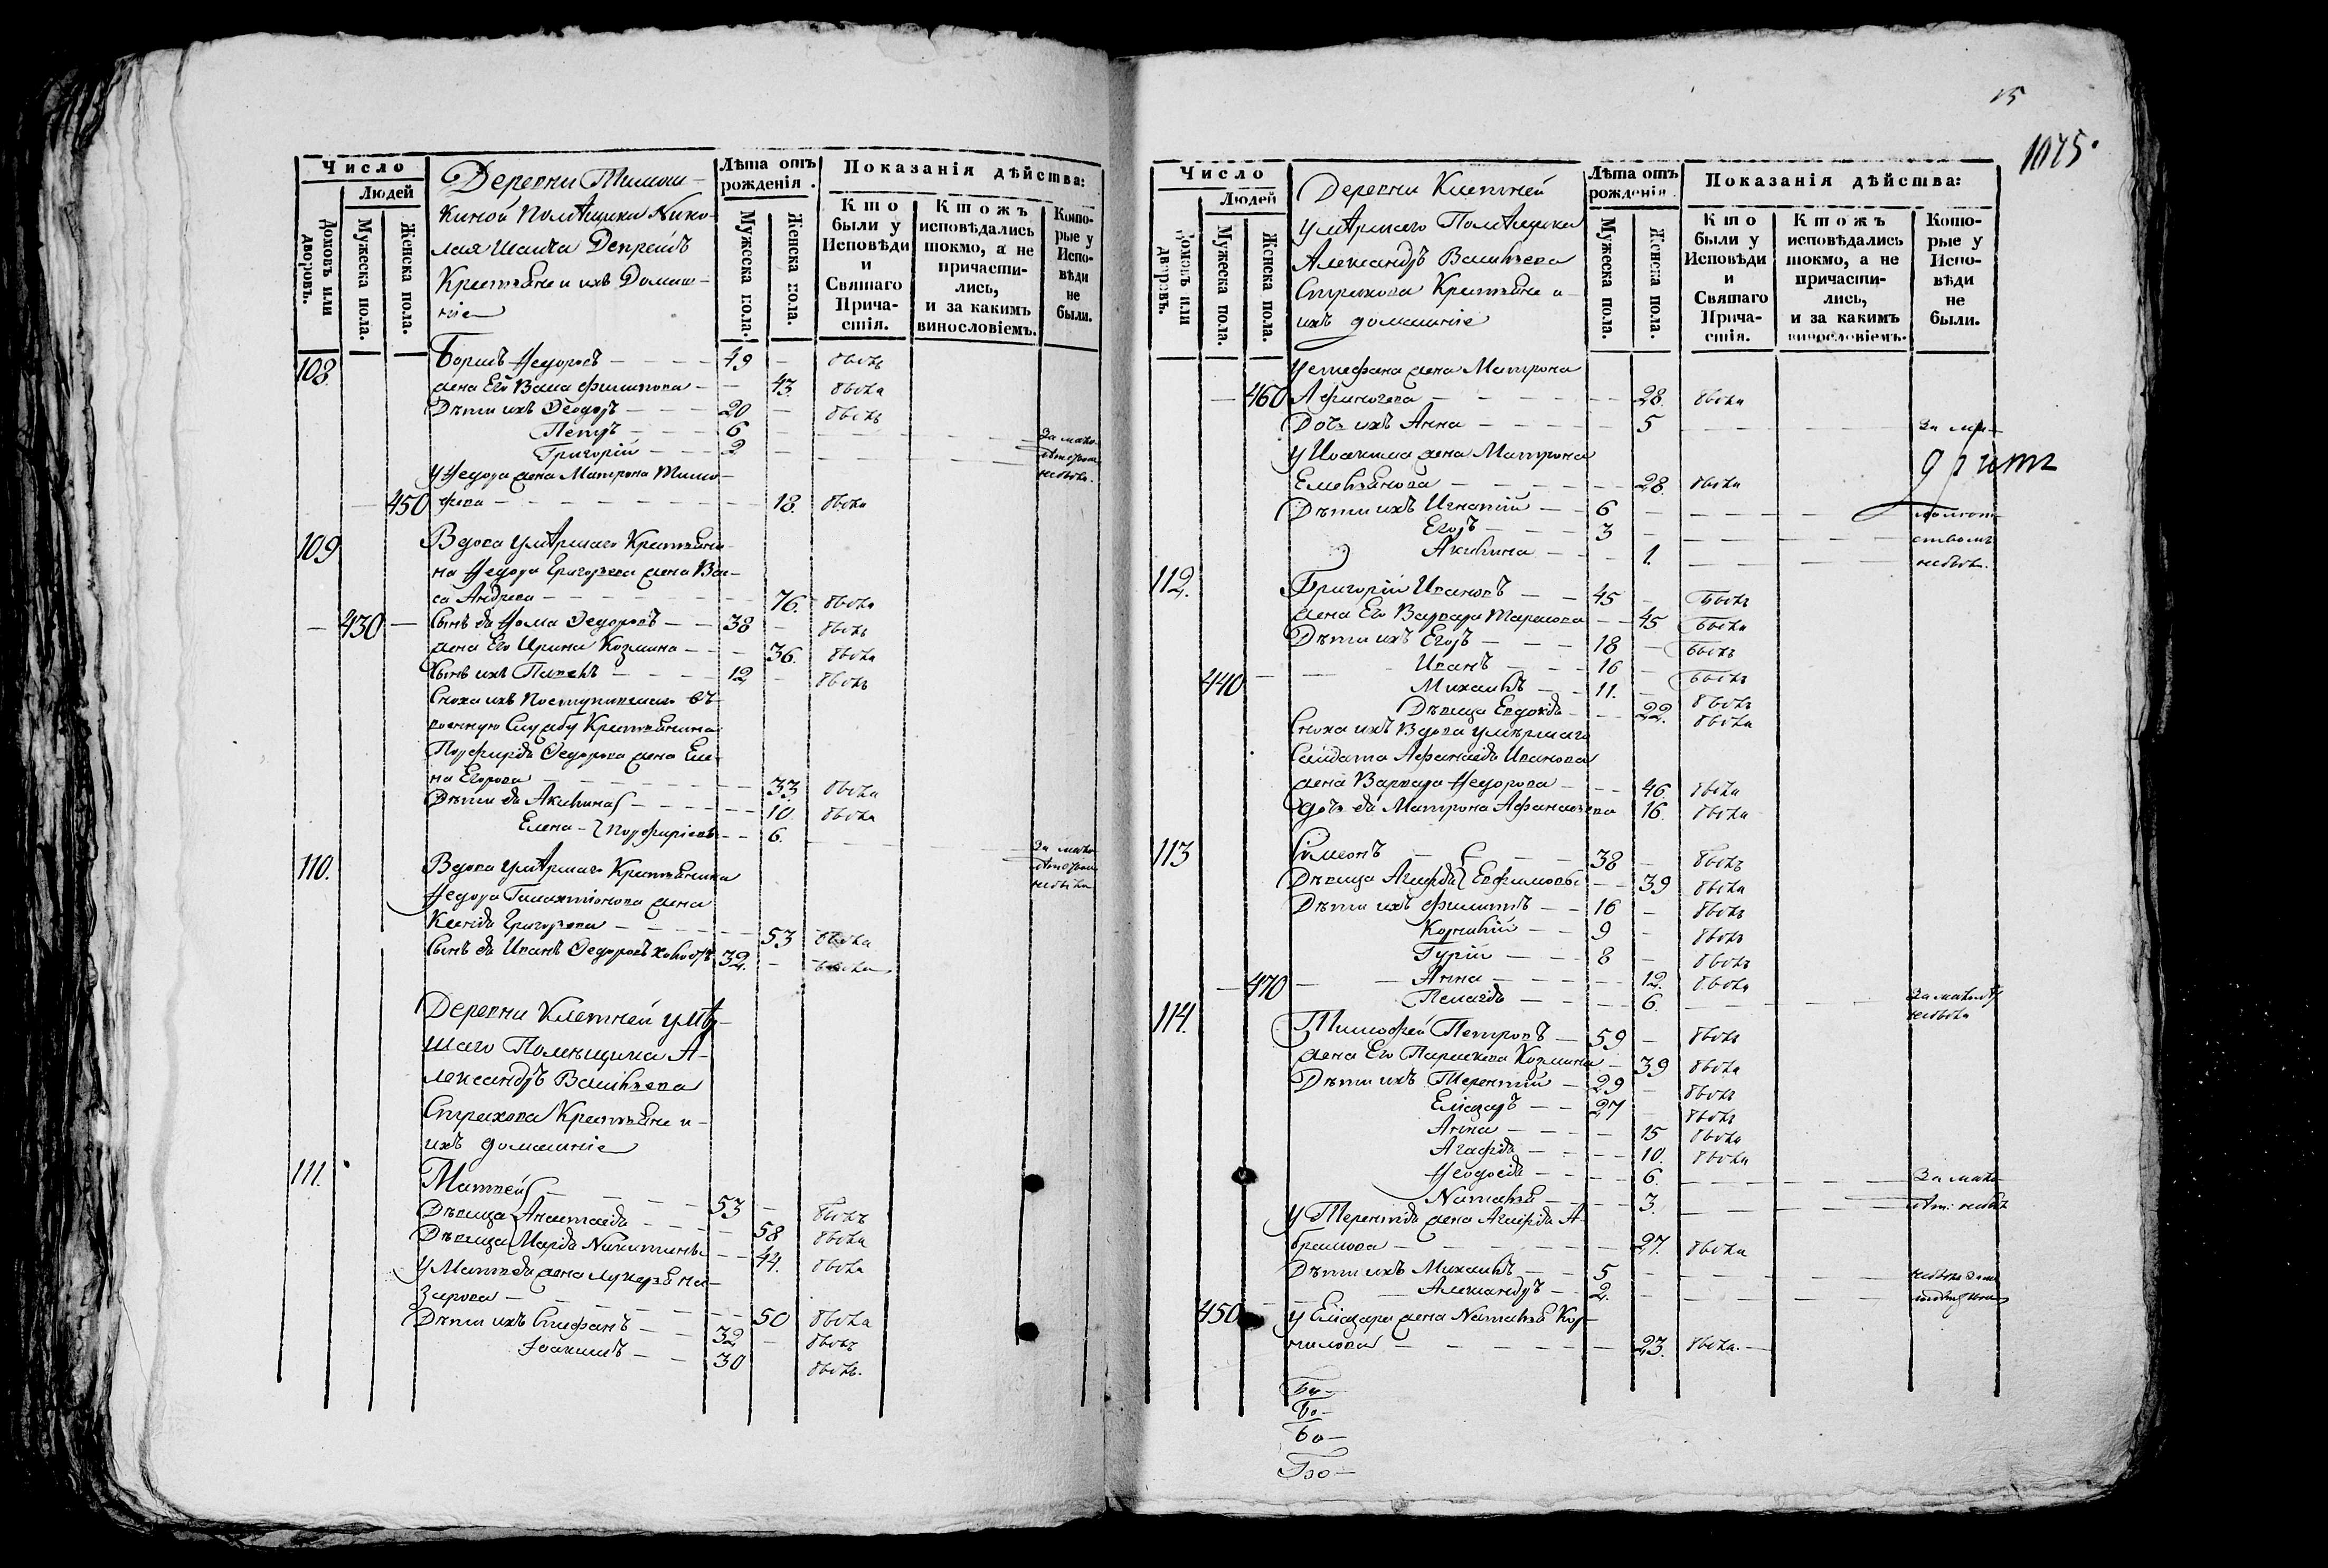 Число
Людей
Домовъ или дворовъ.
Мужеска пола.
Женска пола.
Деревни Тимош-
киной Помѣщика Нико-
лая
Крестьяне и ихъ Домаш-
ніе
Лѣта отъ рожденія.
Мужеска пола.
Женска пола.
Показанія дѣйства:
Кто были у Исповѣди и Святаго Прича-стія.
Ктожъ исповѣдались токмо, а не причасти-лись, и за какимъ винословіемъ.
Кото-рые у Испо-вѣди не были.
108 Борисъ Ѳедоровъ — 49 — былъ
жена Его Васса Филипова — — 43. была
Дѣти ихъ Ѳеодоръ — 20 — былъ
Петръ — 6 — За мало-
Григорій — 2 — лѣтством
у Ѳедора жена Матрона Тимо- не были.
— 450 феева — — 18. была
109 Вдова умѣршаго Крестьяни-
на Ѳедора Григорьева жена Ва-
са Андреева — 76. была
— 430 — Сынъ ея Ѳома Ѳедоровъ — 38 — былъ
жена Его Ирина Козмина — — 36. была
Сынъ ихъ Павелъ — 12 — былъ
Сноха ихъ Поступившаго въ
военную Службу Крестьянина
Порфирія Ѳедорова жена Еле-
на Егорова — 33. была
Дѣти ея Акилина — 10. была
Елена — Порфиріевы — 6.
За мало
лѣтством
не была
110. Вдова умѣршаго Крестьянина
Ѳедора Галактіонова жена
Ксенія Григорьева — 53 была
Сынъ ея Иванъ Ѳедоровъ холостъ 32. —
Деревни Клетней умѣр-
шаго Помѣщика А-
лександръ Васильева
Страхова Крестьяне и
ихъ домашніе
111. Матвей — 53 — былъ
Дѣвица Анастасія — 58 была
Дѣвица Марія Никитины — 44. была
у Матвея жена Лукерья На-
зарова — 50 была
Дѣти ихъ Стефанъ — 32 — былъ
Іоакимъ — 30 былъ.
15
1075.
Число
Людей
Домовъ или дворовъ.
Мужеска пола.
Женска пола.
Деревни Клетней
умѣршаго Помѣщика
Александръ Васильева
Страхова Крестьяне и
ихъ домашніе
Лѣта отъ рожденія.
Мужеска пола.
Женска пола.
Показанія дѣйства:
Кто были у Исповѣди и Святаго Прича-стія.
Ктожъ исповѣдались токмо, а не причасти-лись, и за какимъ винословіемъ.
Кото-рые у Испо-вѣди не были.
у Стефана жена Матрона
— 460 Афиногева — 28. была
Дочь ихъ Анна — 5 — За ма-
у Иоакима жена Матрона
Емельянова — 28. была
Дѣти ихъ Игнатій — 6 —
Егоръ — 3 — ством
Акилина — 1. не были.
112. Григорій Ивановъ — 45 — былъ
жена Его Варвара Тарасова — 45 была
Дѣти ихъ Егоръ — 18 — былъ
Иванъ — 16 — былъ
440 — Михаилъ — 11. — былъ
Дѣвица Евдокія — 22. была
Сноха ихъ Вдова умѣршаго
Салдата Афанасія Иванова
жена Варвара Ѳедорова — 46. была
дочь ея Матрона Афанасьева 16. была
113 Симеонъ — 38 — былъ
Дѣвица Агафья Евфимовы — 39 была
Дѣти ихъ Филиппъ — 16 — былъ
Корнилій — 9 — былъ
Гурій — 8 — былъ
— 470 — Анна — 12. была
Пелагія — 6. За малолѣт
не была
114. Тимофей Петровъ — 59 — былъ
жена Его Параскева Козмина — 39 была
Дѣти ихъ Терентій — 29 — былъ
Елизаръ — 27 — былъ
Анна — 15 была
Агафія — 10. была
Ѳеодосія — 6. За мало
Наталья — 3. лѣт: не был
у Терентія жена Агафія А-
брамова — 27. была
Дѣти ихъ Михаилъ — 5 —
Александръ — 2. —
450 у Елизара жена Наталья Кор-
нилова — 23. была. —